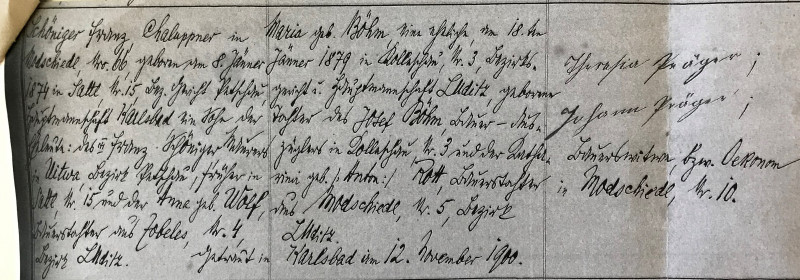 Schöniger Franz Chaluppner in
Modschiedl Nro. 66, geboren am 8. Jänner
1879 in Satt Nr. 15 Bez. Gericht Petschau,
Hauptmannschaft Karlsbad ein Sohn der
Eheleute: des Franz Schöniger Maurers
in Uitwa, Bezirk Petschau, früher in
Satt, Nr. 15, und der Anna geb. Wolf,
Bauerstochter aus Zobeles, Nr. 4
Bezirk Luditz. Getraut in
Maria geb. Böhm eine eheliche, am 18. ten
Jänner 1879 in Dolleschau, Nr. 3, Bezirks-
gericht u. Hauptmannschaft Luditz geborene
Tochter des Josef Böhm, Bauer - Aus-
züglers in Dolleschau Nr. 3, und der Katha-
rina geb. /: Anton :/ Rott, Bauerstochter
aus Modschiedl, Nr. 5, Bezirk
Luditz.
Karlsbad am 12. November 1900.
Theresia Präger ;
Johann Präger ;
Bauerswitwe bzw. Oekonom
in Modschiedl, Nr. 10.